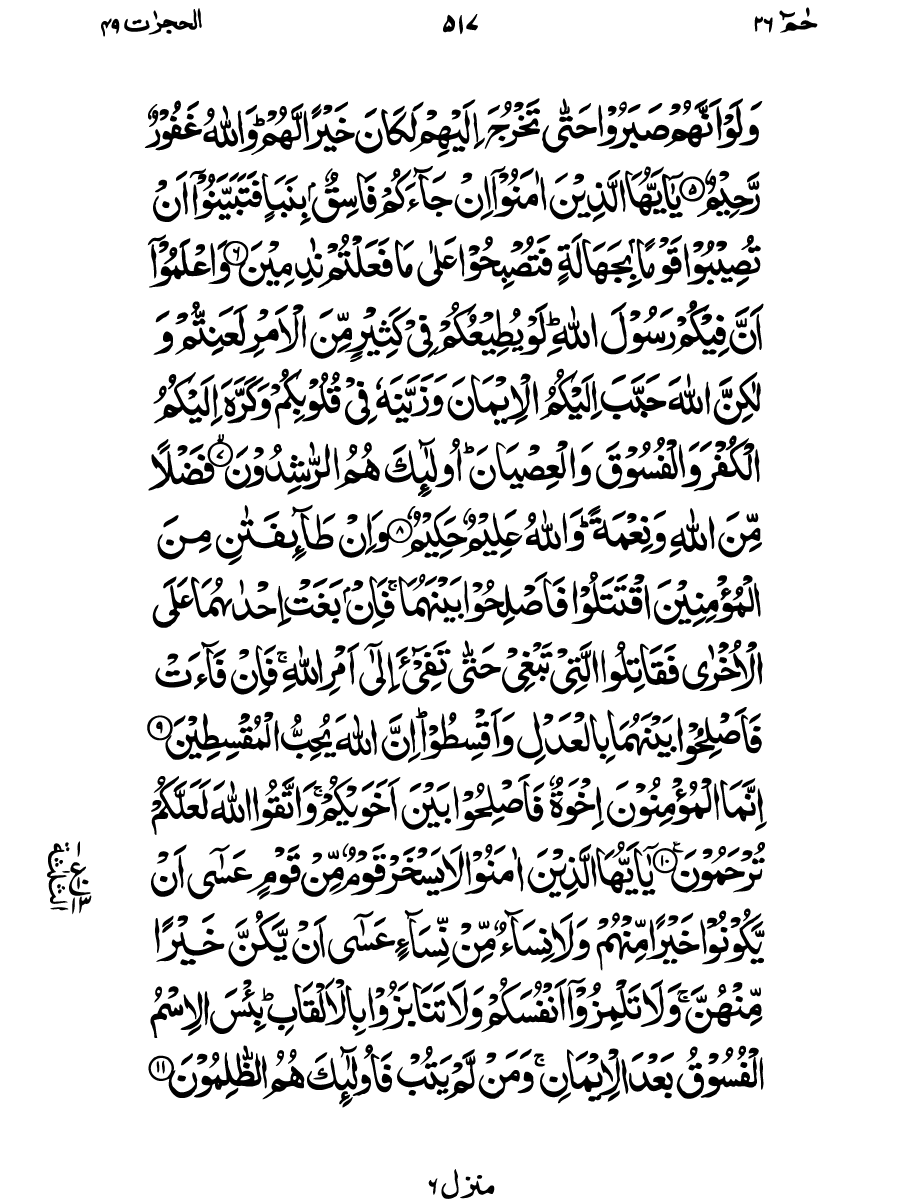 حٰمٓ ٢٦
٥١٧
الحجرٰت ٤٩
وَلَوْ اَنَّهُمْ صَبَرُوْا حَتّٰى تَخْرُجَ اِلَيْهِمْ لَكَانَ خَيْرًا لَّهُمْ ؕ وَاللّٰهُ غَفُوْرٌ
رَّحِيْمٌ ۝٥ يٰۤاَيُّهَا الَّذِيْنَ اٰمَنُوْۤا اِنْ جَآءَكُمْ فَاسِقٌۢ بِنَبَاٍ فَتَبَيَّنُوْۤا اَنْ
تُصِيْبُوْا قَوْمًاۢ بِجَهَالَةٍ فَتُصْبِحُوْا عَلٰى مَا فَعَلْتُمْ نٰدِمِيْنَ ۝٦ وَاعْلَمُوْۤا
اَنَّ فِيْكُمْ رَسُوْلَ اللّٰهِ ؕ لَوْ يُطِيْعُكُمْ فِيْ كَثِيْرٍ مِّنَ الْاَمْرِ لَعَنِتُّمْ وَ
لٰكِنَّ اللّٰهَ حَبَّبَ اِلَيْكُمُ الْاِيْمَانَ وَزَيَّنَهٗ فِيْ قُلُوْبِكُمْ وَكَرَّهَ اِلَيْكُمُ
الْكُفْرَ وَالْفُسُوْقَ وَالْعِصْيَانَ ؕ اُولٰٓئِكَ هُمُ الرّٰشِدُوْنَ ۙ۝٧ فَضْلًا
مِّنَ اللّٰهِ وَنِعْمَةً ؕ وَاللّٰهُ عَلِيْمٌ حَكِيْمٌ ۝٨ وَاِنْ طَآئِفَتٰنِ مِنَ
الْمُؤْمِنِيْنَ اقْتَتَلُوْا فَاَصْلِحُوْا بَيْنَهُمَا ۚ فَاِنْۢ بَغَتْ اِحْدٰىهُمَا عَلَى
الْاُخْرٰى فَقَاتِلُوا الَّتِيْ تَبْغِيْ حَتّٰى تَفِيْٓءَ اِلٰٓى اَمْرِ اللّٰهِ ۚ فَاِنْ فَآءَتْ
فَاَصْلِحُوْا بَيْنَهُمَا بِالْعَدْلِ وَاَقْسِطُوْا ؕ اِنَّ اللّٰهَ يُحِبُّ الْمُقْسِطِيْنَ ۝٩
اِنَّمَا الْمُؤْمِنُوْنَ اِخْوَةٌ فَاَصْلِحُوْا بَيْنَ اَخَوَيْكُمْ ۚ وَاتَّقُوا اللّٰهَ لَعَلَّكُمْ
تُرْحَمُوْنَ ۝١٠ يٰۤاَيُّهَا الَّذِيْنَ اٰمَنُوْا لَا يَسْخَرْ قَوْمٌ مِّنْ قَوْمٍ عَسٰۤى اَنْ
يَّكُوْنُوْا خَيْرًا مِّنْهُمْ وَلَا نِسَآءٌ مِّنْ نِّسَآءٍ عَسٰۤى اَنْ يَّكُنَّ خَيْرًا
مِّنْهُنَّ ۚ وَلَا تَلْمِزُوْۤا اَنْفُسَكُمْ وَلَا تَنَابَزُوْا بِالْاَلْقَابِ ؕ بِئْسَ الِاسْمُ
الْفُسُوْقُ بَعْدَ الْاِيْمَانِ ۚ وَمَنْ لَّمْ يَتُبْ فَاُولٰٓئِكَ هُمُ الظّٰلِمُوْنَ ۝١١
١
ع
١٠
١٣
الثلثة
منزل ٦